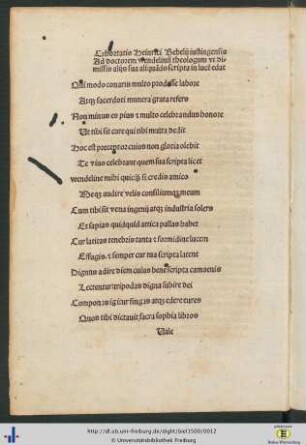 Exhortatio Heinrici Bebelij iustingensis
Ad doctorem wendelinū theologum vt di-
missis alijs sua aliquādo scripta in lucē edat
Qui modo conaris multo prodesse labore
Atqʒ sacerdoti munera grata refers
Non minus es pius et multo celebrandus honore
Ut tibi sit care qui tibi multa dedit
Hoc est preceptor cuius non gloria obibit
Te viuo celebrant quem sua scripta licet
wendeline mihi quicqʒ si credis amico
Neqʒ audire velis consiliumqʒ meum
Cum tibi sit vena ingenij atqʒ industria solers
Et sapias quidquid attica pallas habet
Cur latitas tenebris tanta et formidine lucem
Effugis et semper cur tua scripta latent
Dignus adire diem cuius bene scripta camaenis
Lecturus tripodas digna subire dei
Componas igitur fingas atqʒ edere cures
Quos tibi dictauit sacra sophia libros
Vale
http://dl.ub.uni-freiburg.de/diglit/biel1500/0012
© Universitätsbibliothek Freiburg